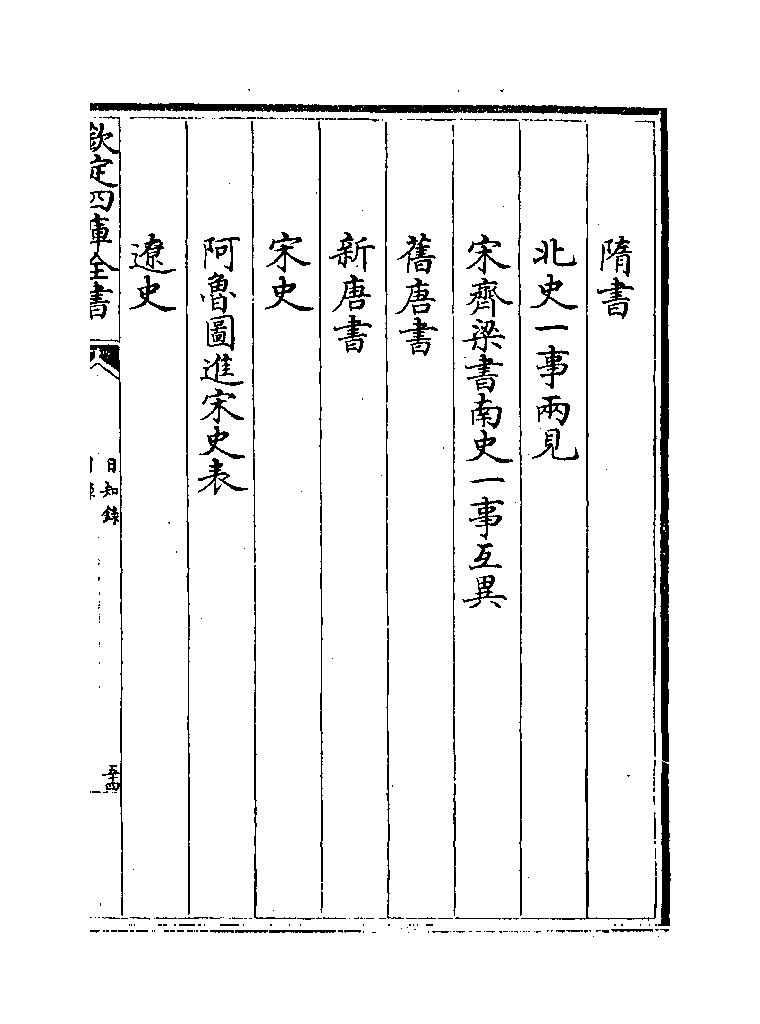 隋書
北史一事兩見
宋齊梁書南史一事互異
舊唐書
新唐書
宋史
阿魯圖進宋史表
遼史
欽定四庫全書
日知錄
五十四